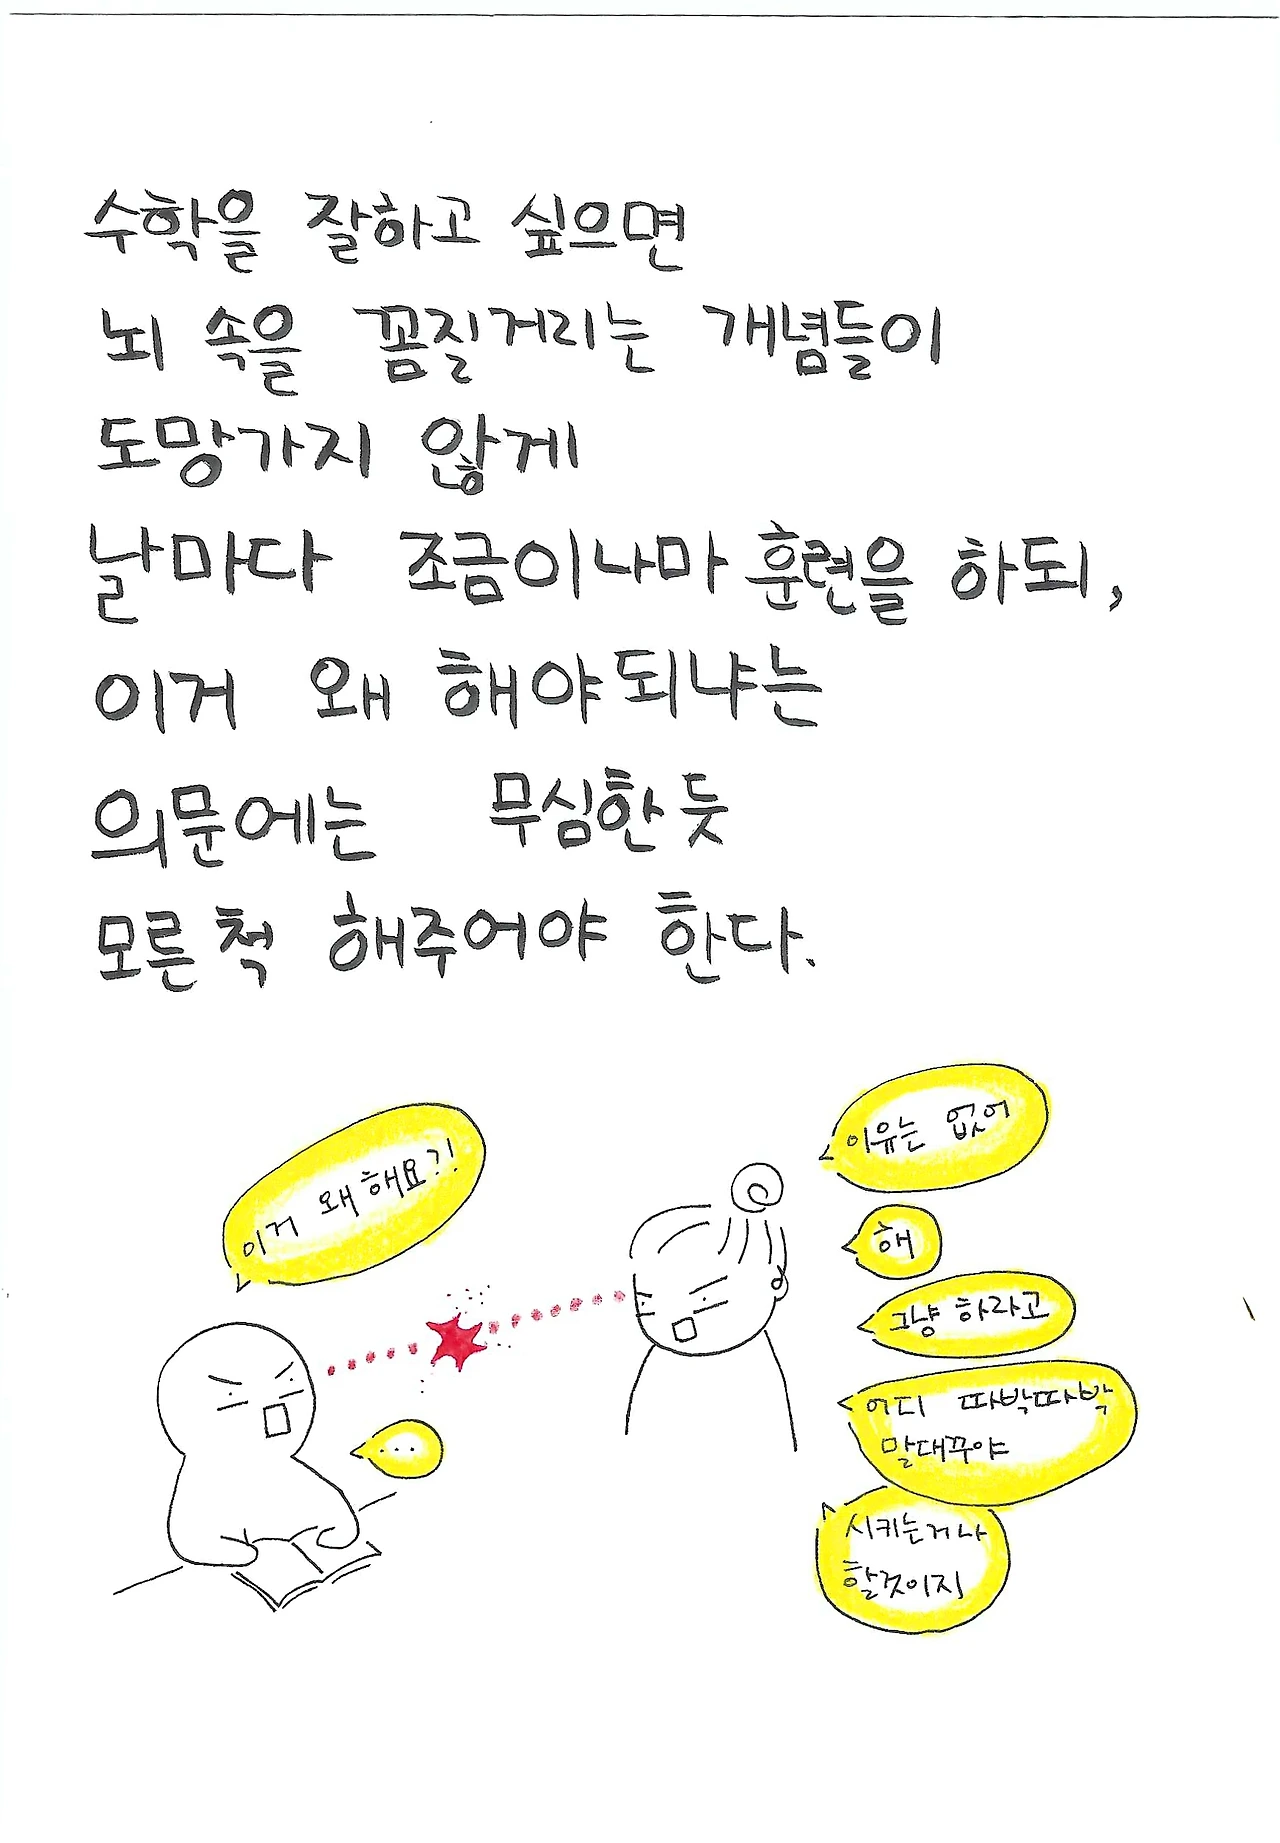 수학을 잘하고 싶으면
뇌 속을 꼼질거리는 개념들이
도망가지 않게
날마다 조금이나마 훈련을 하되,
이거 왜 해야되냐는
의문에는 무심한 듯
모른 척 해주어야 한다.
이거 왜 해요?!
...
이유는 없어
해
그냥 하라고
어디 따박따박
말대꾸야
시키는거나
할것이지